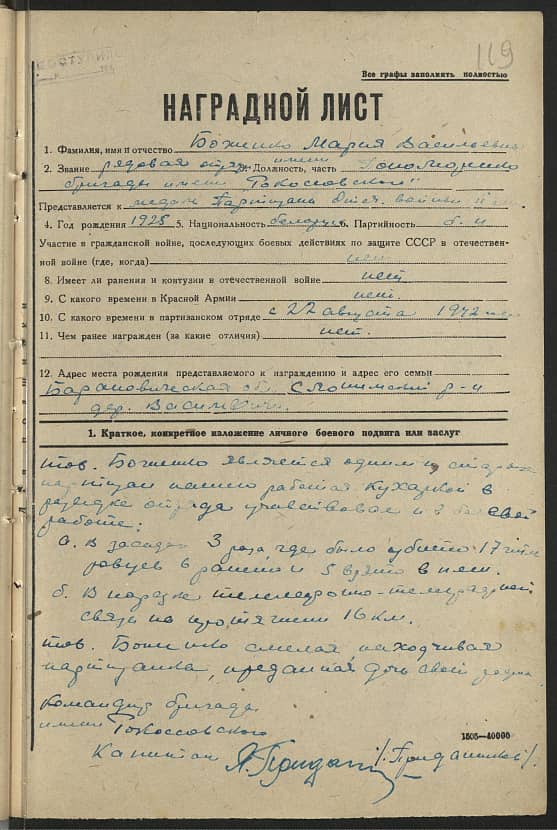 119
Все графы заполнять полностью
НАГРАДНОЙ ЛИСТ
1. Фамилия, имя и отчество Божишко Мария Васильевна
2. Звание рядовая отряд имени Должность, часть Пономоренко
бригады имени Рокоссовского"
Представляется к медали Партизана Отеч. войны II ст.
4. Год рождения 1925 5. Национальность белоруска 6. Партийность б.п
Участие в гражданской войне, последующих боевых действиях по защите СССР в отечествен-
ной войне (где, когда) нет
8. Имеет ли ранения и контузии в отечественной войне нет
9. С какого времени в Красной Армии нет.
10. С какого времени в партизанском отряде с 22 августа 1942
11. Чем ранее награжден (за какие отличия) нет.
12. Адрес места рождения представляемого к награждению и адрес его семьи
Барановическая обл. Слонимский р-н
дер. Васим
1. Краткое, конкретное изложение личного боевого подвига или заслуг
тов. Божишко является одним из старых
партизан работая Кухаркой в
отряда участвовал в своей
работе:
а. В засадах 3 раза, где было убито 17 гит
ровцев ранено и 5 взято в плен.
б. В порезке телефонно-телеграфной
связи на протяжении 16 км.
тов. Божишко смелая находчивая
партизанка, преданная дочь своей родины
Командир бригады
имени Рокоссовского
Капитан
1505—40000